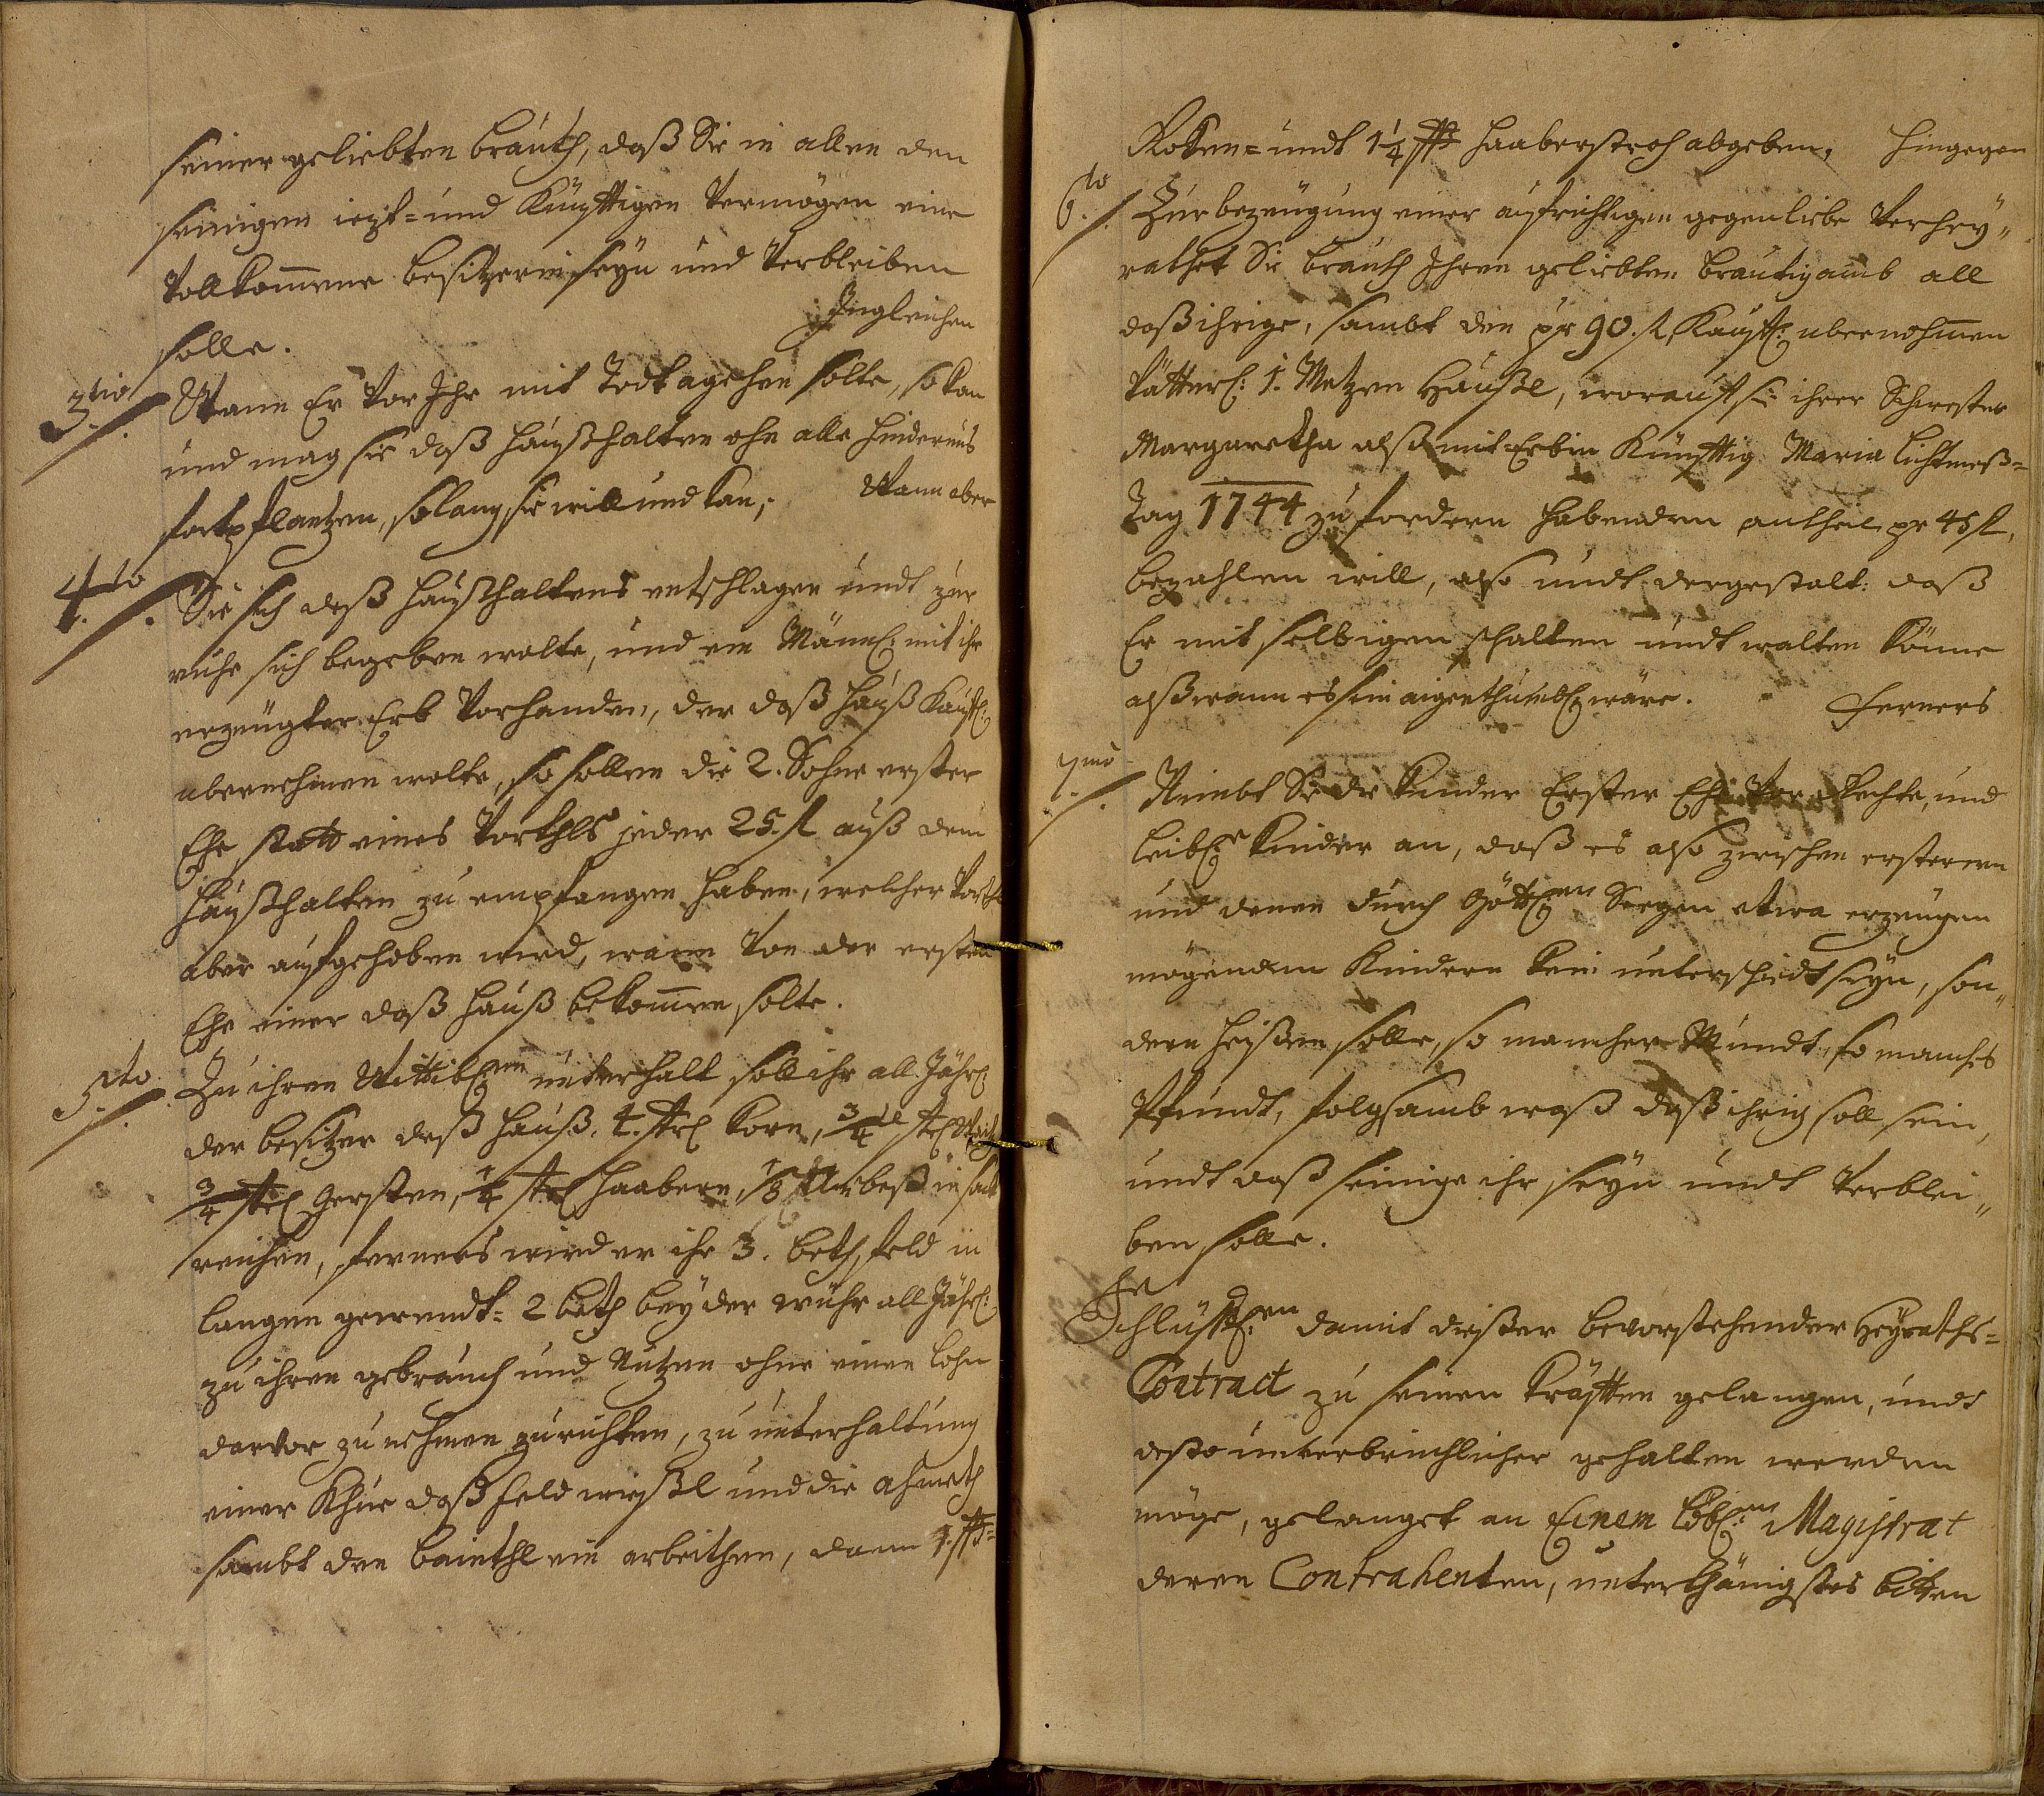 seiner geliebten brauth, daß Sie in allen den
seinigen iezt= und Künfftigen Vermögen eine
Vollkom̅ene besitzerin seyn und Verbleiben
solle. Ingleichen
3.tio Wann Er Vor Ihr mit Todt agehen solte, so kan
und mag sie daß haußhalten ohn alle hindernus
fortpflantzen, solang sie will und kan, Wann aber
4.to Sie sich deß haußhaltens entschlagen undt zur
ruhe sich begeben wolte, und ein Mänl: mit ihr
erzeugter Erb Vorhanden, der daß hauß Käuffl:
ubernehmen wolte, so sollen die 2. Söhne erster
Ehe statt eines Vorthls jeder 25. fl auß dem
haußhalten zu empfangen haben, welcher Vorthl
aber aufgehoben wird, wann Von der ersten
Ehe einer daß hauß bekom̅en solte.
5.to Zu ihren Wittibl:en unterhalt soll ihr all Jährl:
der besitzer deß hauß, 4. Strl Korn, 3/4tl Strl
3/4 Strl Gersten, 1/4 Strl haabern, 1/8 Arbeß in sack
reichen, ferners wird er ihr 3. beth feld in
langen gewendt= 2 beth bey der wühr all Jährl:
zu ihren gebrauch und Nutzen ohne einen lohn
darvor zu nehmen zurichten, zu unterhaltung
einer Khue daß feld wießl und die ahmeth
sambt den bainthl ein arbeithen, dann 1. ßß=
Roken= undt 1 1/4 ßß haaberstroh abgeben, hingegen
6.to Zur bezeugung einer aufrichtigen gegenliebe Verhey„
rathet Sie brauth Ihren geliebten bräutigamb all
daß ihrige, sambt den pr 90. fl, Käuffl: ubernohmen
Vätterl: 1. Metzen Häußl, worauf sie ihrer Schwester
Margaretha alß mit-Erbin Künfftig Maria lichtmeß=
Tag 1744 zu fordern habenden antheil pr 45 fl,
bezahlen will, also undt dergestalt: daß
Er mit selbigen schalten undt walten könne
alß wann es sein aigenthumbl: wäre. Ferners
7.mo Nimbt Sie die Kinder Erster Ehe Vor Rechte, und
leibl:e Kinder an, daß es also zwischen ersteren
und denen durch Göttl:en Seegen etwa erzeugen
mögenden Kindern kein unterschiedt seyn, son„
dern heißen solle, so mancher Mundt, so manches
Pfundt, folgsamb waß daß ihrig soll sein,
undt daß seinige ihr seyn undt Verblei„
ben solle.
Schlüßl:en damit dießer bevorstehender Heyraths=
Contract zu seinen Kräfften gelangen, undt
desto unverbrüchlicher gehalten werden
möge, gelanget an Einem löbl:en Magistrat
deren Contrahenten, unterthänigstes bitten